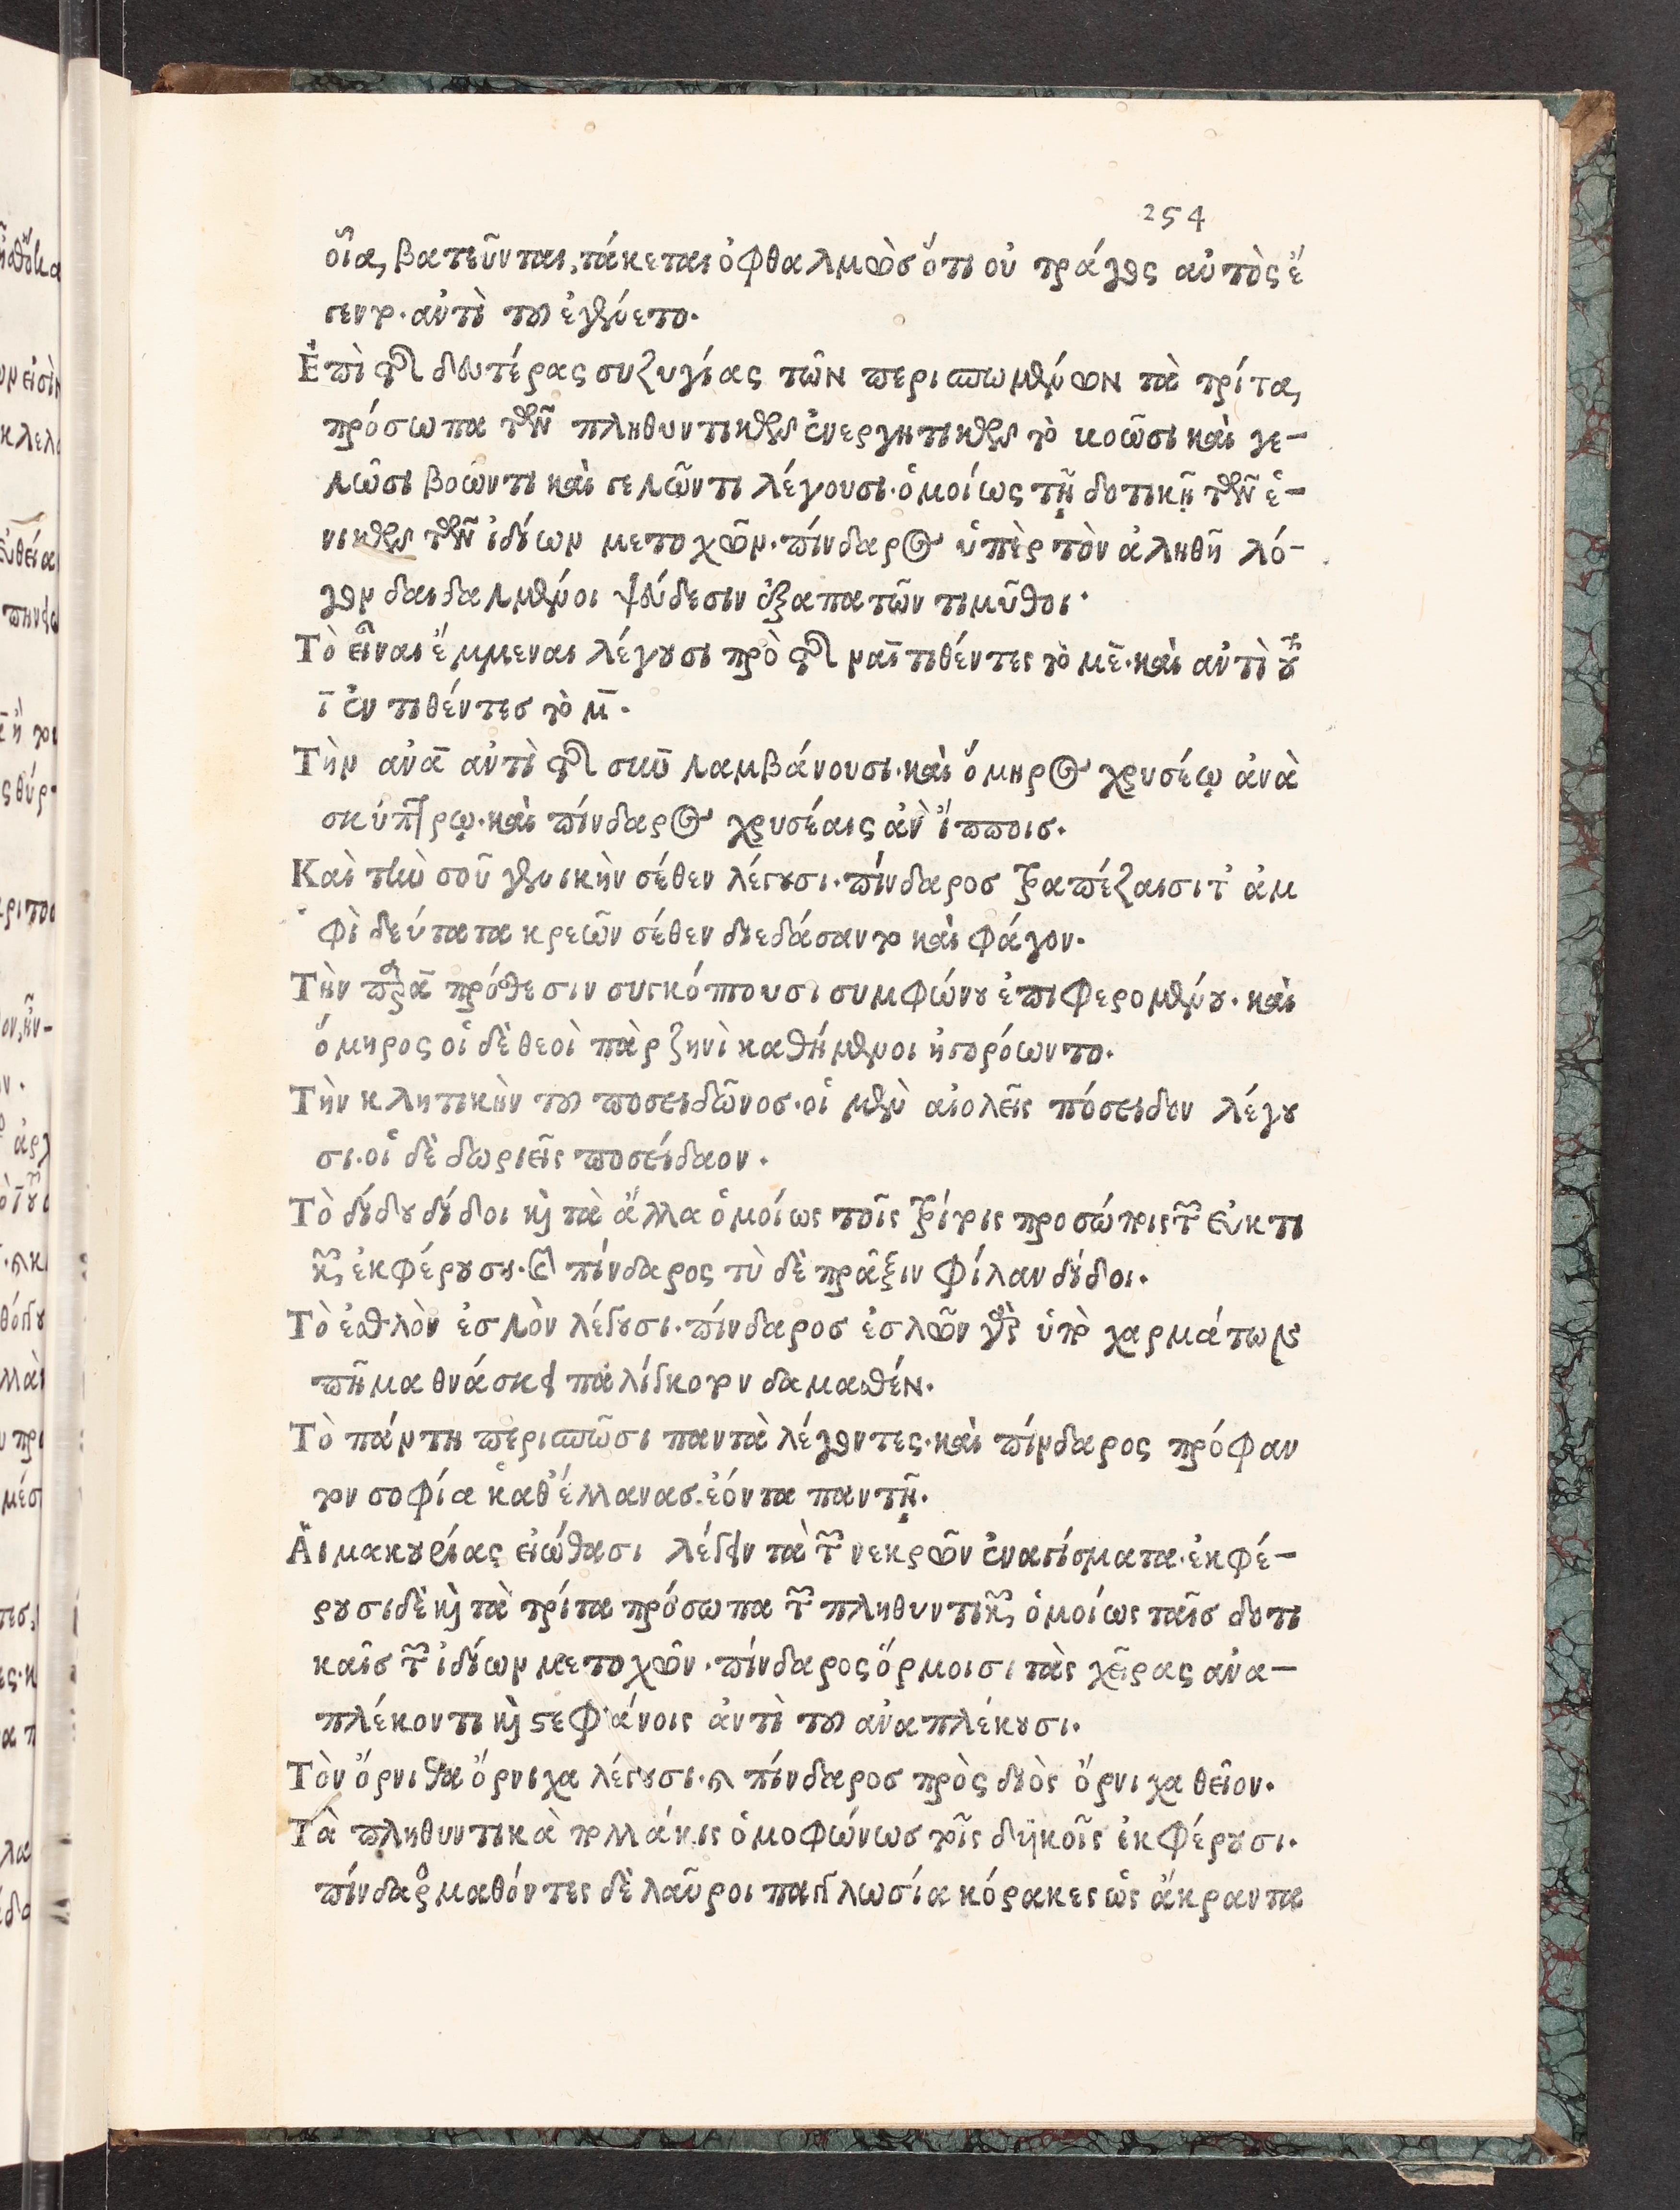 254
οἷα, βατεῦνται, τάκεται ὀφθαλμὼσ ὅτι οὐ τράγος αὐτὸς ἔ
γεντο. ἀντὶ τοῦ ἐγένετο.
Ἐπὶ τῆς δευτέρας συζυγίας τῶν περισπωμένων τὰ τρίτα,
πρόσωπα τῶν πληθυντικῶν ἐνεργητικῶν τὸ βοῶσι καὶ γε-
λῶσι βοῶντι καὶ γελῶντι λέγουσι. ὁμοίως τῇ δοτικῇ τῶν ἑ-
νικῶν τῶν ἰδίων μετοχῶν. πίνδαρος ὑπὲρ τὸν ἀληθῆ λό-
γον δαιδαλμένοι ψεύδεσιν ἐξαπατῶντι μῦθοι.
Τὸ εἶναι ἔμμεναι λέγουσι πρὸ τῆς ναῑ τιθέντες τὸ με̄. καὶ ἀντὶ τοῦ
ῑ ἐν τιθέντεσ τὸ μ̄.
Τὴν ἀνᾱ ἀντὶ τῆς σὺν λαμβάνουσι. καὶ ὅμηρος χρυσέῳ ἀνὰ
σκήπτρῳ. καὶ πίνδαρος χρυσέαις ἀν ἵπποισ.
Καὶ τὴν σοῦ γενικὴν σέθεν λέγουσι. πίνδαροσ τραπέζαισι τ' ἀμ
φὶ δεύτατα κρεῶν σέθεν διεδάσαντο καὶ φάγον.
Τὴν παρᾱ πρόθεσιν συγκόπτουσι συμφώνου ἐπιφερομένου. καὶ
ὅμηρος οἱ δὲ θεοὶ πὰρ ζηνὶ καθήμενοι ἠγορόωντο.
Τὴν κλητικὴν τοῦ ποσειδῶνοσ. οἱ μὲν αἰολεῖς πόσειδον λέγου
σι. οἱ δὲ δωριεῖς ποσείδαον.
Τὸ δίδου δίδοι καὶ τὰ ἄλλα ὁμοίως τοῖς τρίτοις προσώποις τῶν εὐκτι
κῶν ἐκφέρουσι. καὶ πίνδαρος τὺ δὲ πρᾶξιν φίλαν δίδοι.
Τὸ ἐσθλὸν ἐσλὸν λέγουσι. πίνδαροσ ἐσλῶν γὰρ ὑπὸ χαρμάτων
πῆμα θνάσκει παλίγκοτον δαμασθέν.
Τὸ πάντη περισπῶσι παντὰ λέγοντες. καὶ πίνδαρος πρόφαν
τον σοφίᾳ καθ' ἕλλανασ ἐόντα παντῇ.
Αἱμακουρίας εἰώθασι λέγειν τὰ τῶν νεκρῶν ἐναγίσματα. ἐκφέ-
ρουσι δὲ καὶ τὰ τρίτα πρόσωπα τῶν πληθυντικῶν ὁμοίως ταῖσ δοτι
καῖσ τῶν ἰδίων μετοχῶν. πίνδαρος ὅρμοισι τὰς χεῖρας ἀνα-
πλέκοντι καὶ στεφάνοις ἀντὶ τοῦ ἀναπλέκουσι.
Τὸν ὄρνιθα ὄρνιχα λέγουσι. καὶ πίνδαροσ πρὸς διὸς ὄρνιχα θεῖον.
Τὰ πληθυντικὰ πολλάκις ὁμοφώνωσ τοῖς δυϊκοῖς ἐκφέρουσι.
πίνδαρος μαθόντες δὲ λαῦροι παγγλωσίᾳ κόρακες ὡς ἄκραντα